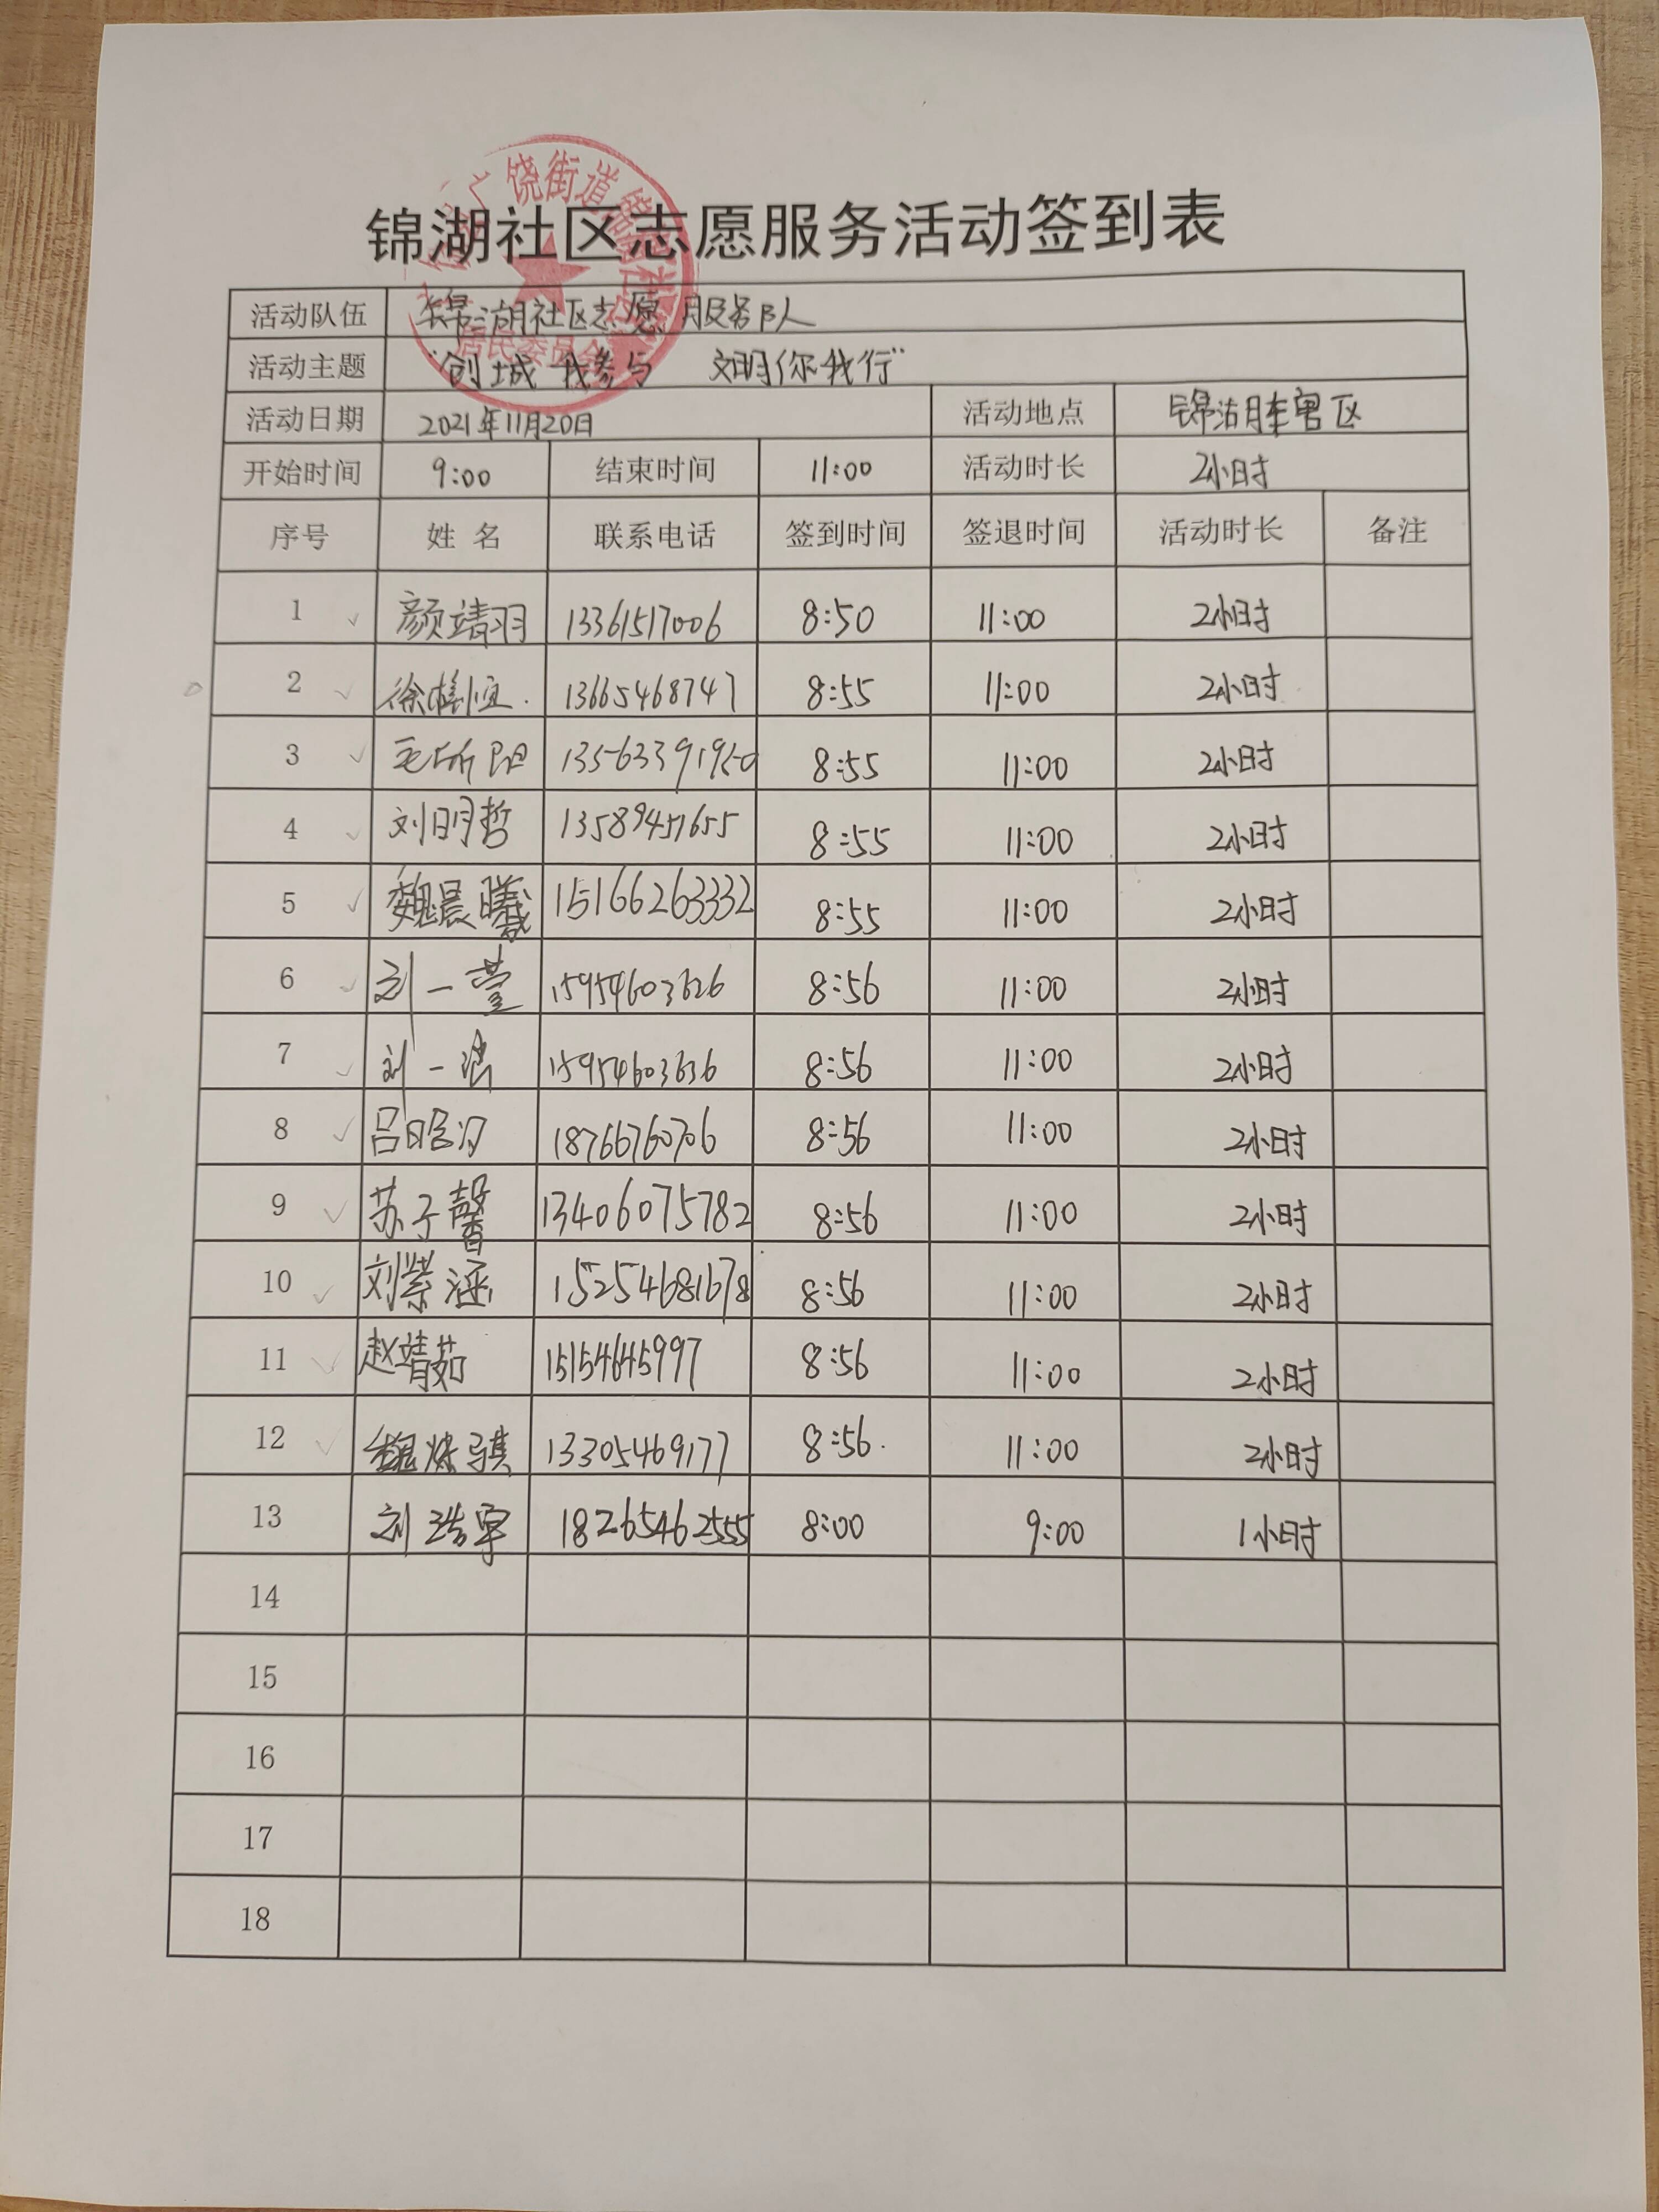 锦湖社区志愿服务活动签到表
广饶街道锦湖社区
居民委员会
活动队伍 锦湖社区志愿服务队
活动主题 "创城我参与 文明你我行"
活动日期 2021年11月20日 活动地点 锦湖辖区
开始时间 9:00 结束时间 11:00 活动时长 2小时
序号 姓名 联系电话 签到时间 签退时间 活动时长 备注
1 颜靖羽 13361517006 8:50 11:00 2小时
2 13665468747 8:55 11:00 2小时
3 13563391950 8:55 11:00 2小时
4 刘明哲 13589451655 8:55 11:00 2小时
5 魏晨曦 15166263332 8:55 11:00 2小时
6 刘一萱 15954603626 8:56 11:00 2小时
7 刘一 15954603636 8:56 11:00 2小时
8 18766760706 8:56 11:00 2小时
9 苏子馨 13406075782 8:56 11:00 2小时
10 刘紫涵 15254681678 8:56 11:00 2小时
11 赵靖茹 15154645997 8:56 11:00 2小时
12 13305469177 8:56 11:00 2小时
13 刘浩宇 18265462555 8:00 9:00 1小时
14
15
16
17
18